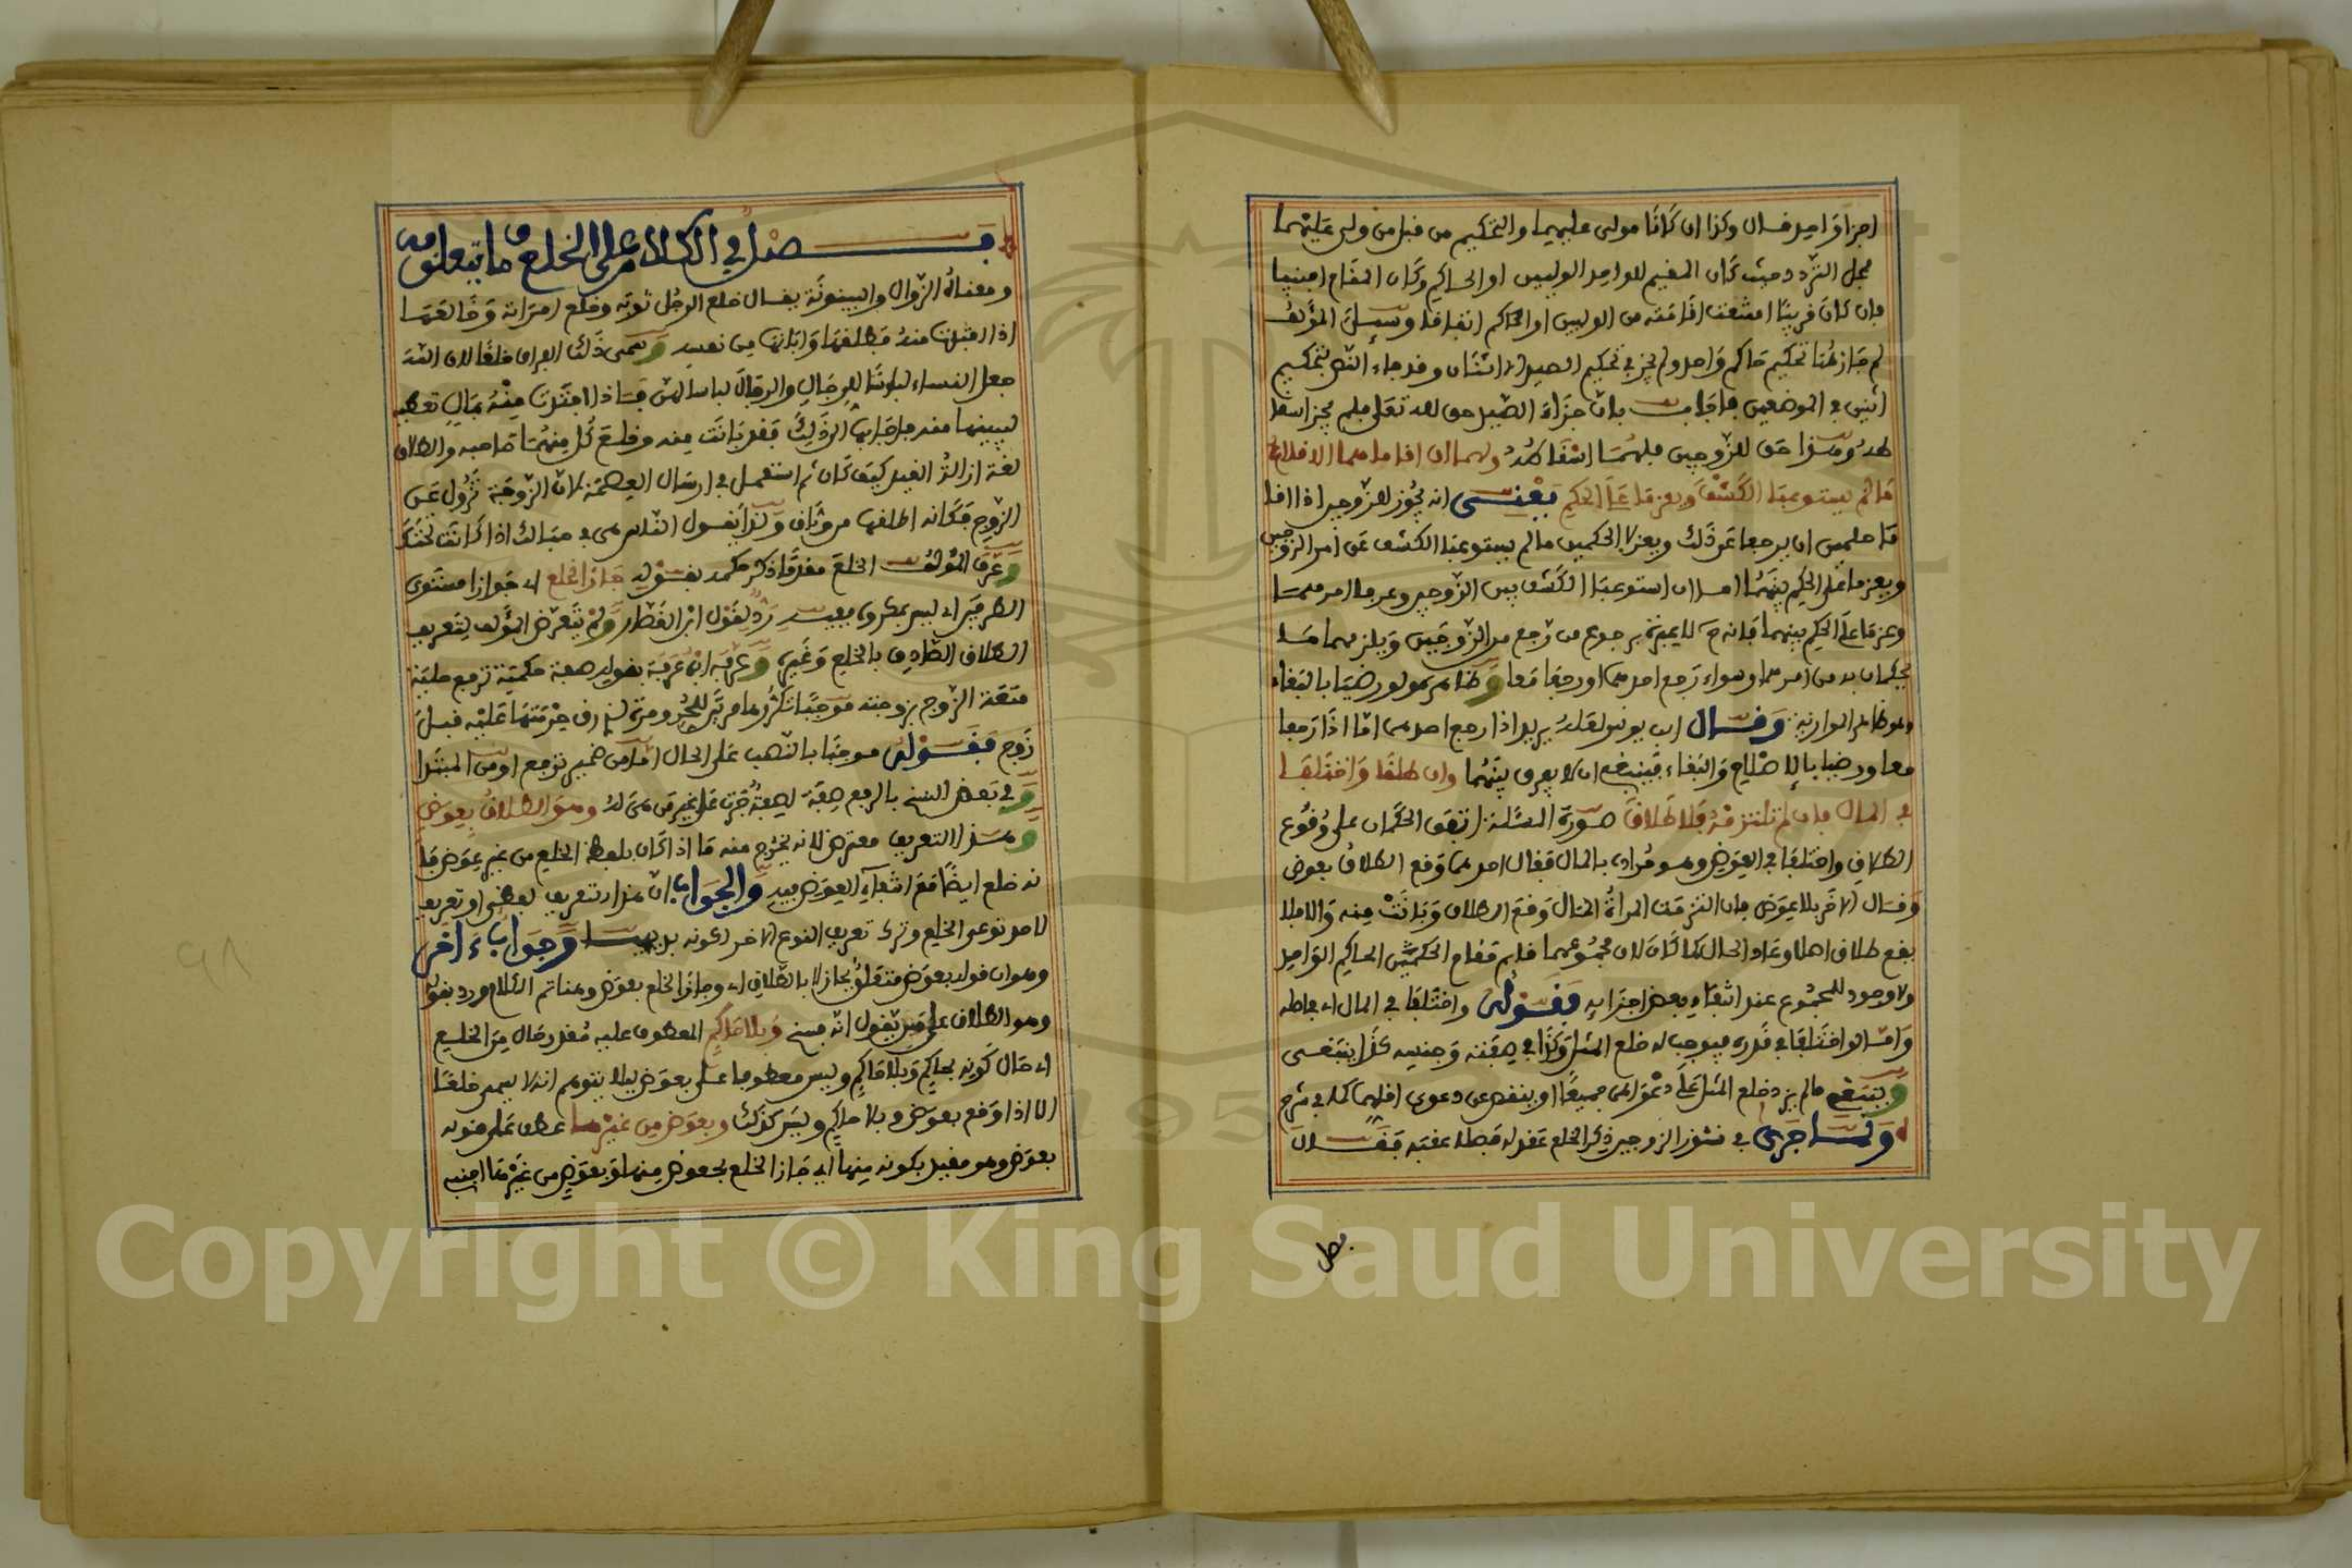 اجزأ واحد قال وكذا ان كانا مولى عليهما والتحكيم من قبل من ولى عليهما
محل التردد حيث كان المقيم للواحد الوليين او الحاكم وكان المقام اجنبيا
فان كان قريبا امتنعت اقامته من الوليين او الحاكم اتفاقا وسئل المؤلف
لم جاز هنا تحكيم حاكم واحد ولم يجز في تحكيم الصيد الا اثنان وقد جاء النص بتحكيم
اثنين في الموضعين فاجاب بان جزاء الصيد حق لله تعلى فلم يجز اسقا
طه وهذا حق للزوجين فلهما اسقاطه ولهما ان اقاماهما الاقلاع
ما لم يستوعبا الكشف ويعزما على الحكم يعنى انه يجوز للزوجين اذا اقا
ما حكمين ان يرجعا عن ذلك ويعزلا الحكمين ما لم يستوعبا الكشف عن امر الزوجين
ويعزما على الحكم بينهما اما ان استوعبا الكشف بين الزوجين وعرفا امرهما
وعزما على الحكم بينهما فانه ح لا عبرة برجوع من رجع من الزوجين ويلزمهما ما
يحكمان به من امرهما وسواء رجع احدهما او رجعا معا وظاهره ولو رضيا بالبقاء
وهو ظاهر الموازية وقال ابن يونس لعله يريد اذا رجع احدهما اما اذا رجعا
معا ورضيا بالاصلاح والبقاء فينبغي ان لا يفرق بينهما وان طلقا واختلفا
في المال فان لم تلتزمه فلا طلاق صورة المسئلة اتفق الحكمان على وقوع
الطلاق واختلفا في العوض وهو مراده بالمال فقال احدهما وقع الطلاق بعوض
وقال الآخر بلا عوض فان التزمت المراة المال وقع الطلاق وبانت منه والا فلا
يقع طلاق اصلا وعاد الحال كما كان لان مجموعهما قائم مقام الحكمين الحاكم الواحد
ولا وجود للمجموع عند انتفاء بعض اجزائه فقوله واختلفا في المال اي في اصله
واما لو اختلفا في قدره فيوجب له خلع المثل وكذا في صفته وجنسه كذا ينبغى
وينبغي ما لم يزد خلع المثل على دعواهما جميعا او ينقص عن دعوى اقلهما كما في شرح
ولما جرى في نشوز الزوجين ذكر الخلع عقد له فصلا عقبه فقال
فصل
فصل في الكلام على الخلع وما يتعلق به
ومعناه الزوال والبينونة يقال خلع الرجل ثوبه وخلع امراته وخالعها
اذا افتدت منه فطلقها وابانها من نفسه وسمى ذلك الفراق خلعا لان الله
جعل النساء لباسا للرجال والرجال لباسا لهن فاذا افتدت منه بمال تعطيه
ليبينها منه فاجابها الى ذلك فقد بانت منه وخلع كل منهما صاحبه والطلاق
لغة ازالة القيد كيف كان ثم استعمل في ارسال العصمة لان الزوجة تزول عن
الزوج فكانه اطلقها من وثاق ولذا يقول الناس هى في حبالك اذا كانت تحتك
وعرف المؤلف الخلع مقدما ذكر حكمه بقوله جاز الخلع اي جوازا مستوى
الطرفين اي ليس بمكروه ففيه رد لقول ابن القطار ولم يتعرض المؤلف لتعريف
الطلاق الصادق بالخلع وغيره وعرفه ابن عرفة بقوله صفة حكمية ترفع حلية
متعة الزوج بزوجته موجبا تكررها مرتين للحر ومرة لذي رق حرمتها عليه قبل
زوج فقوله موجبا بالنصب على الحال اما من ضمير ترفع او من المبتدا
وفي بعض النسخ بالرفع صفة لصفة جرت على غير من هى له وهو الطلاق بعوض
وهذا التعريف معترض لانه يخرج منه ما اذا كان بلفظ الخلع من غير عوض فا
نه خلع ايضا مع انتفاء العوض فيه والجواب ان هذا تعريف لبعض او تعريف
لاحد نوعى الخلع وترك تعريف النوع الآخر لكونه بديهيا وجواب ءاخر
وهو ان قوله بعوض متعلق بجاز لا بالطلاق اي وجاز الخلع بعوض وهنا تم الكلام ورد بقوله
وهو الطلاق على من يقول انه فسخ وبلا حاكم المعطوف عليه مقدر حال من الخلع
اي حال كونه بحاكم وبلا حاكم وليس معطوفا على بعوض ليلا يتوهم انه لا يسمى خلعا
الا اذا وقع بعوض وبلا حاكم وليس كذلك وبعوض من غيرها عطف على قوله
بعوض وهو مقيد بكونه منها اي جاز الخلع بعوض منها وبعوض من غيرها اجنبيا